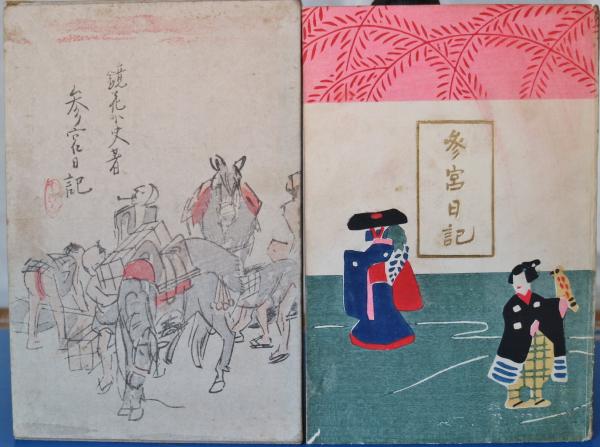 鏡花小史著
参宮日記
参宮日記